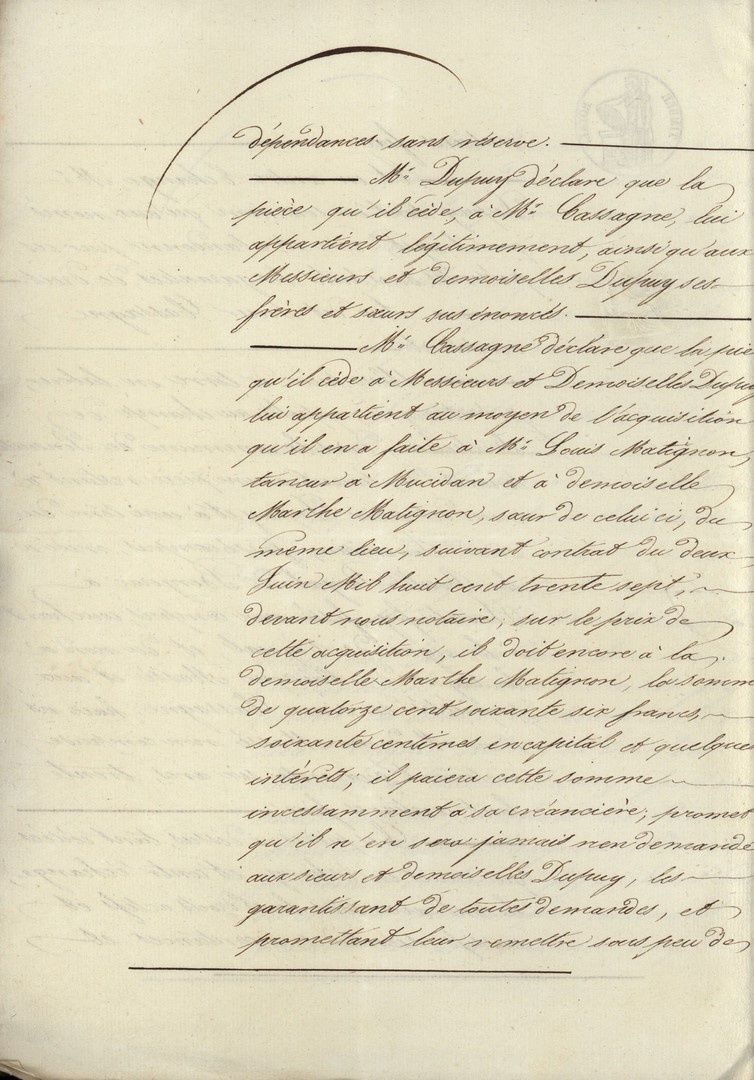 dépendances sans réserve.
Mr. Dupuy déclare que la
pièce qu'il cède, à Mr. Cassagne, lui
appartient légitimement, ainsi qu'aux
Messieurs et demoiselles Dupuy ses
frères et sœurs sus énoncés.
Mr. Cassagne déclare que la piè
qu'il cède à Messieurs et Demoiselles Dupuy
lui appartient au moyen de l'acquisition
qu'il en a faite à Mr. Louis Matignon,
taneur à Mucidan et à demoiselle
Marthe Matignon, sœur de celui ci, du
même lieu, suivant contrat du deux
Juin Mil huit cent trente sept,
devant nous notaire, sur le prix de
cette acquisition, il doit encore à la
demoiselle Marthe Matignon, la somme
de quatorze cent soixante six francs,
soixante centimes en capital et quelques
intérêts; il paiera cette somme
incessamment à sa créancière, promet
qu'il n'en sera jamais rien demandé
aux sieurs et demoiselles Dupuy, les
garantissant de toutes demandes, et
promettant leur remettre sous peu de